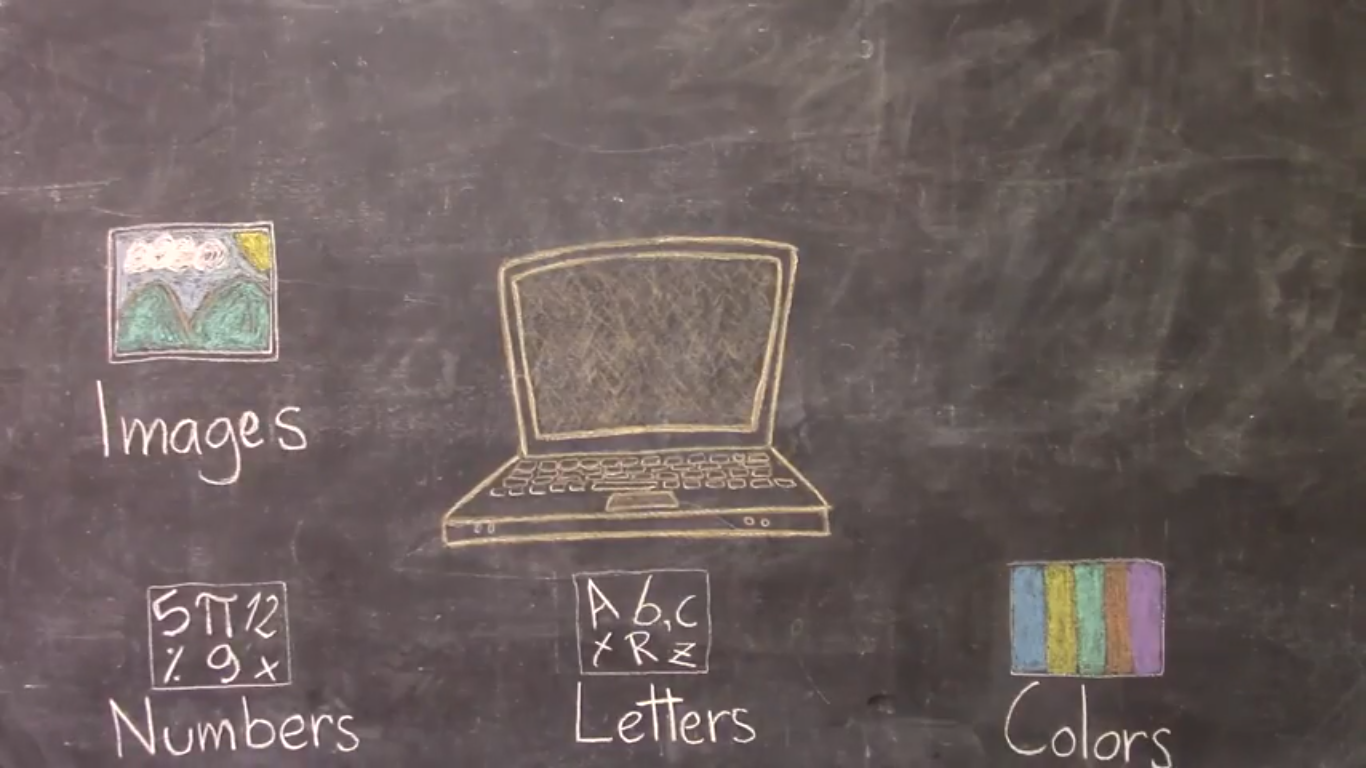 Images
5 π 12
٪ 9 x
Numbers
A b,c
Y R z
Letters
Colors